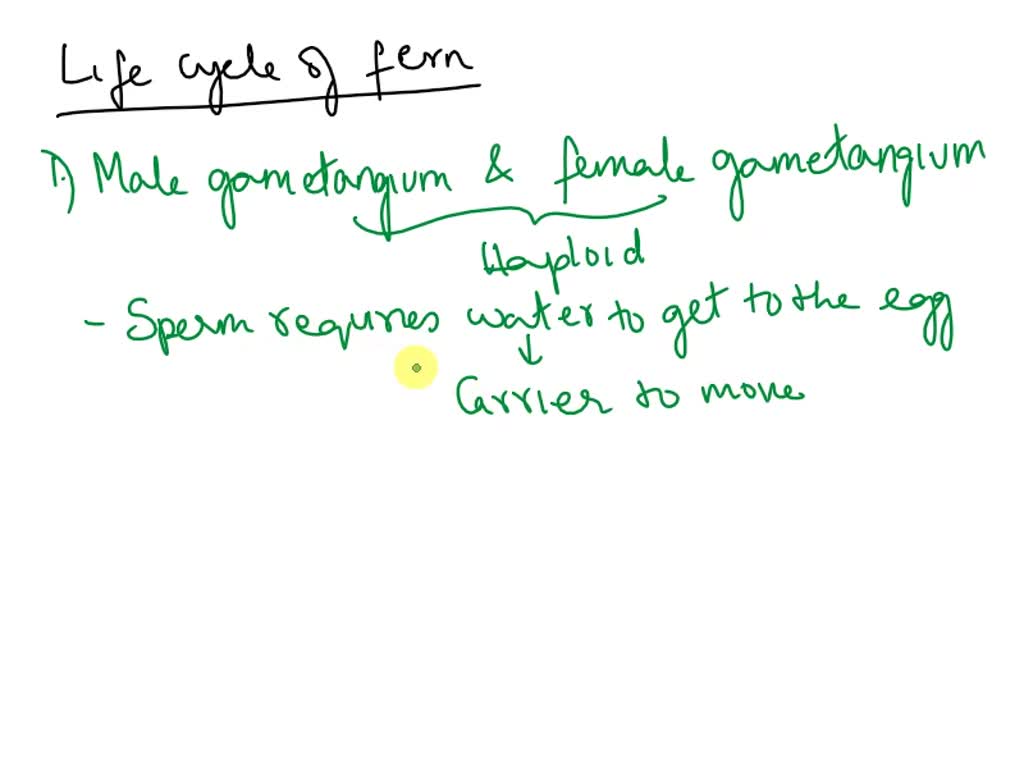 Life cycle of fern
1.) Male gametangium & female gametangium
Haploid
- Sperm requires water to get to the egg
Carrier to move